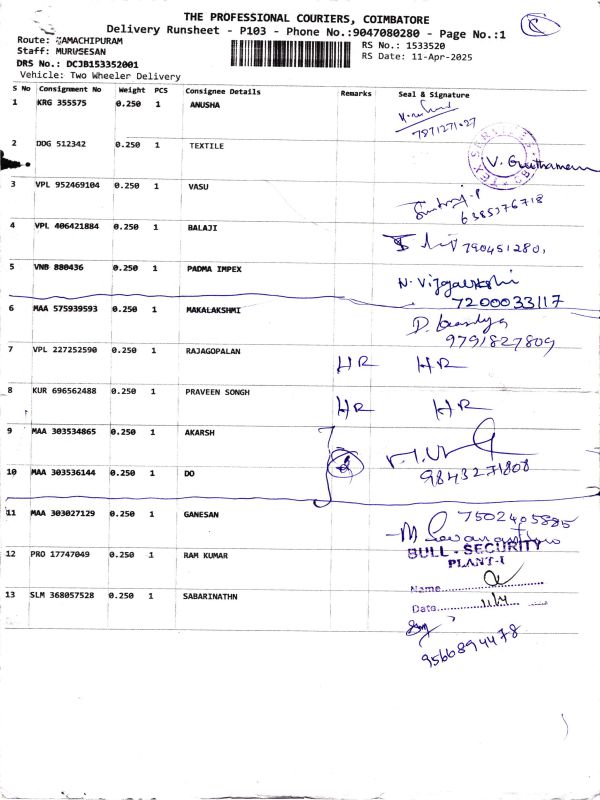 THE PROFESSIONAL COURIERS, COIMBATORE
Delivery Runsheet - P103 - Phone No.:9047080280 - Page No.:1
Route: RAMACHIPURAM
Staff: MURUGESAN
RS No.: 1533520
DRS No.: DCJB153352001
RS Date: 11-Apr-2025
Vehicle: Two Wheeler Delivery
S No Consignment No Weight PCS Consignee Details Remarks Seal & Signature
1 KRG 355575 0.250 1 ANUSHA
7871271027
2 DDG 512342 0.250 1 TEXTILE
3 VPL 952469104 0.250 1 VASU
6385376718
4 VPL 406421884 0.250 1 BALAJI
7904512801
5 VNB 880436 0.250 1 PADMA IMPEX N. Vijayalakshi
7200033117
6 MAA 575939593 0.250 1 MAKALAKSHMI
9791827809
7 VPL 227252590 0.250 1 RAJAGOPALAN HR HR
8 KUR 696562488 0.250 1 PRAVEEN SONGH HR HR
9 MAA 303534865 0.250 1 AKARSH
10 MAA 303536144 0.250 1 DO 2 9843271808
11 MAA 303027129 0.250 1 GANESAN 7502405885
BULL - SECURITY
PLANT-I
12 PRO 17747049 0.250 1 RAM KUMAR
Name
Date 11/4
13 SLM 368057528 0.250 1 SABARINATHN
9566894478